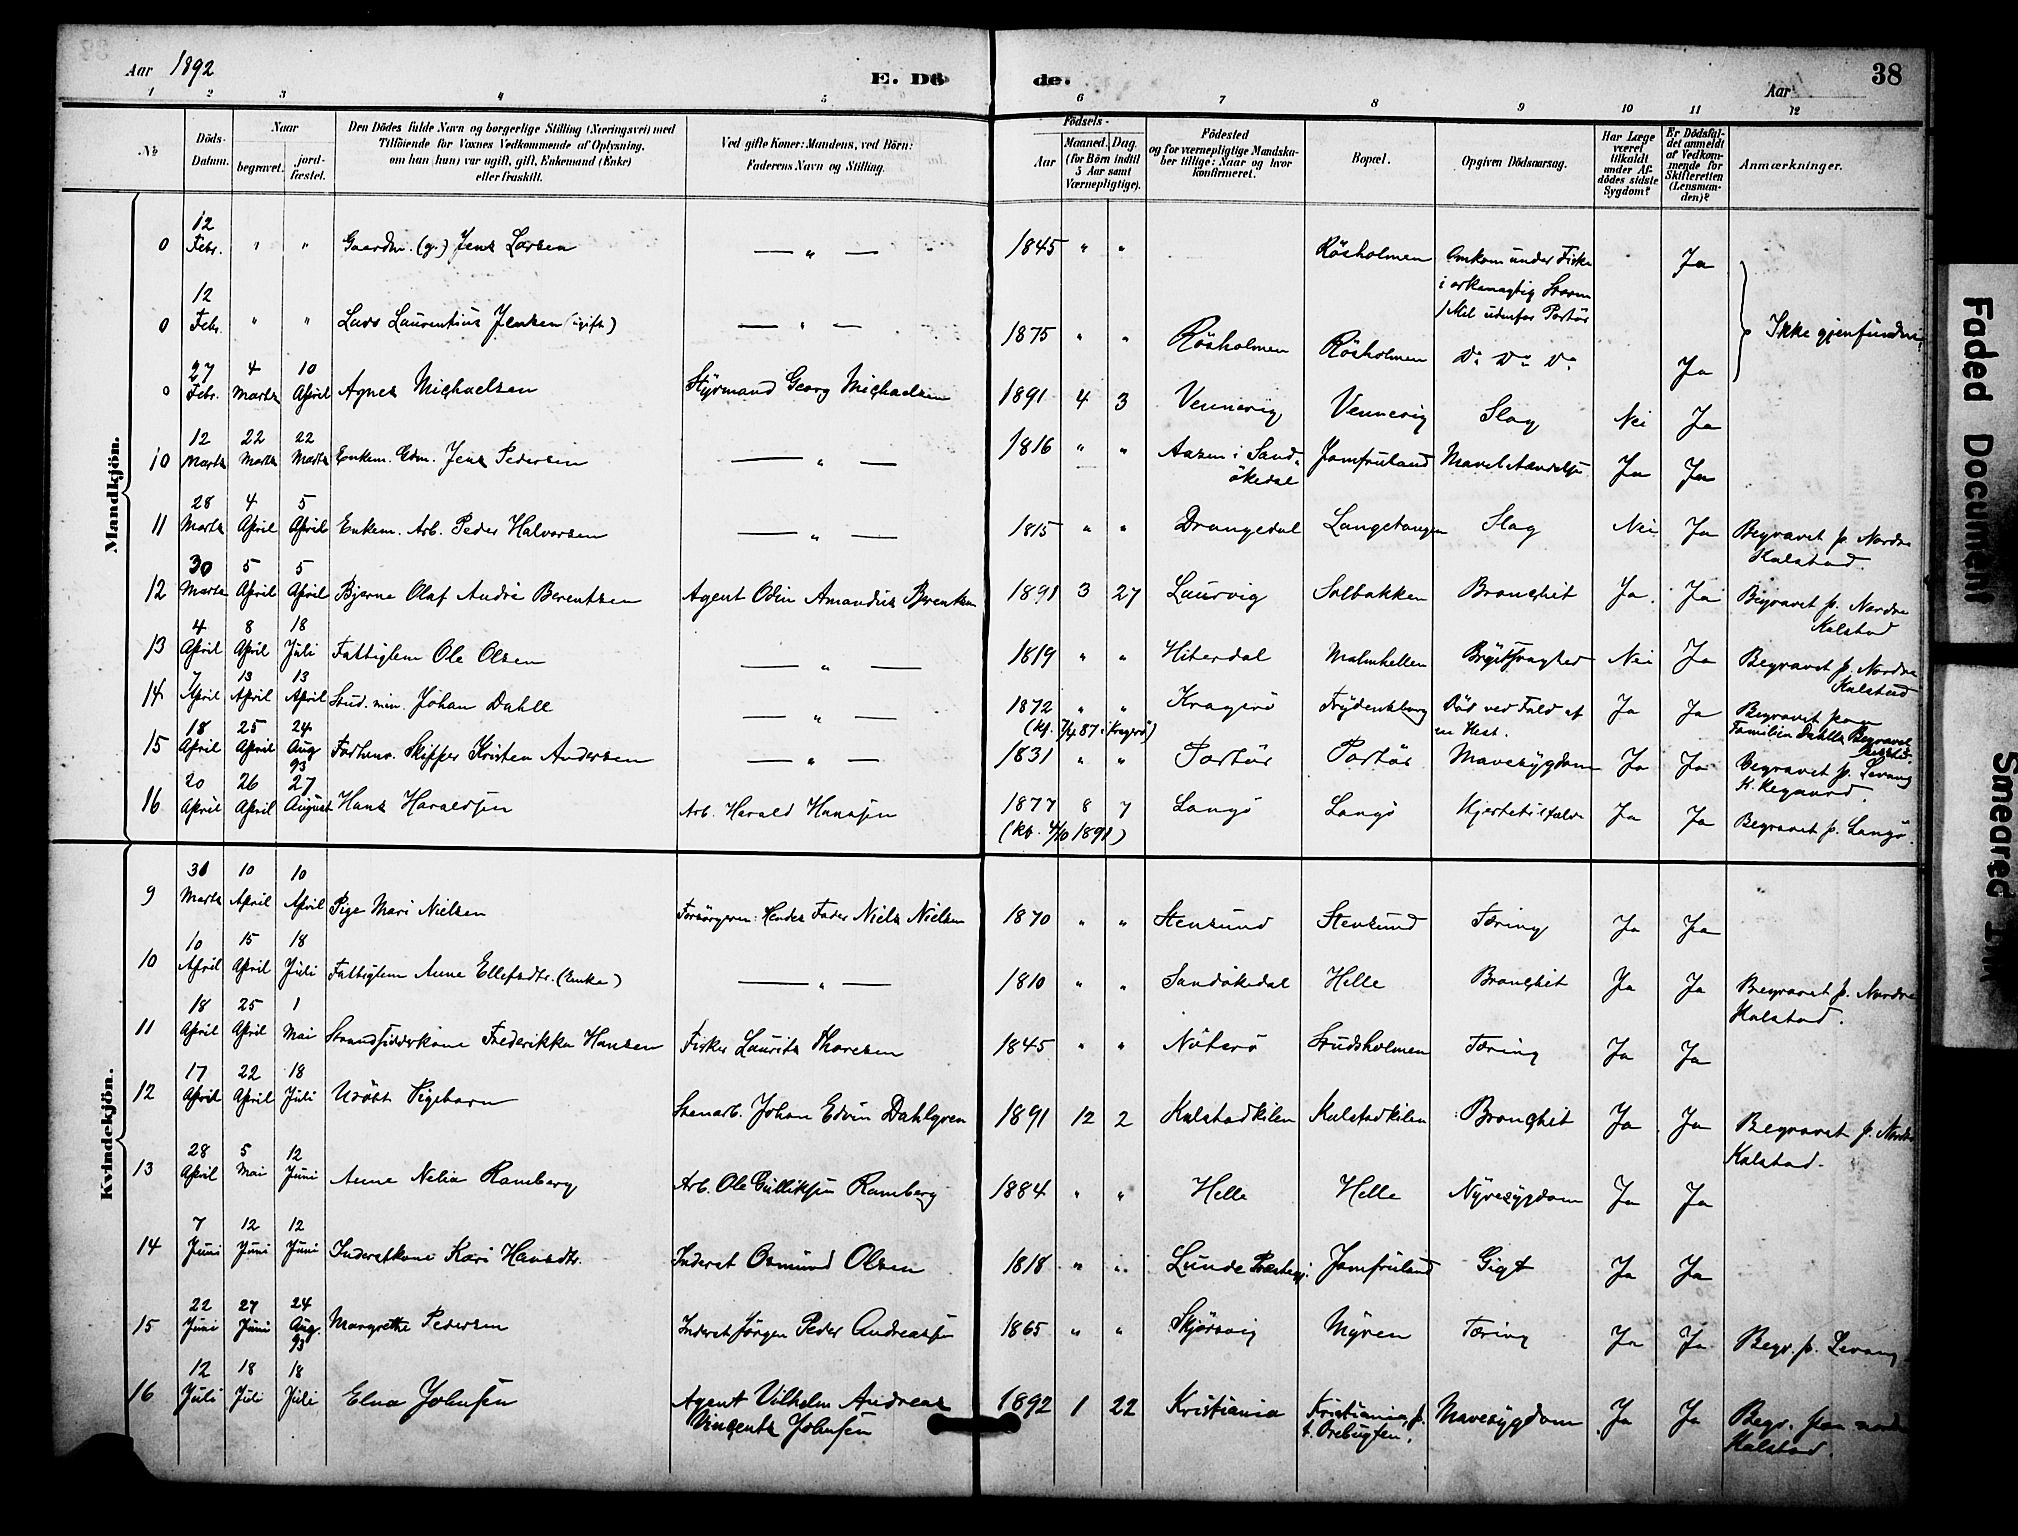 Aar 1892
E. Döde.
Aar
38
1 2 3 4 5 6 7 8 9 10 11 12
No
Döds-Datum.
Naar
begravet.
jordfæstet.
Den Dödes fulde Navn og borgerlige Stilling (Næringsvei) med
Tilföiende for Voxnes Vedkommende af Oplysning,
om han (hun) var ugift, gift, Enkemand (Enke)
eller fraskilt.
Ved gifte Koner: Mandens, ved Börn:
Faderens Navn og Stilling.
Födsels-
Aar
Maaned. Dag.
(for Börn indtil
5 Aar samt
Værnepligtige).
Födested
og for værnepligtige Mandska-
ber tillige: Naar og hvor
konfirmeret.
Bopæl.
Opgiven Dödsaarsag.
Har Læge
været
tilkaldt
under Af-
dödes sidste
Sygdom?
Er Dödsfal-
det anmeldt
af Vedkom-
mende for
Skifteretten
(Lensman-
den)?
Anmærkninger.
Mandkjön.
0 12 Febr. " " Gaardm. (g.) Jens Larsen — " — 1845 " " Rösholmen Omkom under Fiske i orkanagtig Storm 1 Mil udenfor Portör Ja
0 12 Febr. " " Lars Laurentius Jensen (ugift) — " — 1875 " " Rösholmen Rösholmen Do Do Do Ja
Ikke gjenfundne
0 27 Febr. 4 Marts 10 April Agnes Michaelsen Styrmand Georg Michaelsen 1891 4 3 Vennevig Vennevig Slag Nei Ja
10 12 Marts 22 Marts 22 Marts Enkem. Gdm. Jens Pedersen — " — 1816 " " Aasen i Sandökedal Jomfruland Ja Ja
11 28 Marts 4 April 5 April Enkem. Arb. Peder Halvorsen — " — 1815 " " Drangedal Langetangen Slag Nei Ja Begravet p. Nordre Kalstad.
12 30 Marts 5 April 5 April Bjerne Olaf André Berentsen Agent Odin Amandus Berentsen 1891 3 27 Laurvig Solbakken Bronchit Ja Ja Begravet p. Nordre Kalstad
13 4 April 8 April 18 Juli Fattiglem Ole Olsen — " — 1819 " " Hiterdal Malmhellen Nei Ja Begravet p. Nordre Kalstad
14 7 April 13 April 13 April Stud. min. Johan Dahll — " — 1872 " " (Kf. 7/4 87 i Kragerö) Kragerö Frydensborg Död ved Fald af en Hest. Ja Ja Begravet paa Familien Dahlls
15 18 April 25 April 24 Aug 93 Forhenv. Skipper Kristen Andersen — " — 1831 " " Portör Portör Mavesygdom Ja Ja Begravet p. Levang K.kegaard.
16 20 April 26 April 27 August Hans Haraldsen Arb. Harald Hanssen 1877 8 7 (kf. 4/10 1891) Langö Langö Ja Ja Begravet p. Langö.
Kvindekjön.
9 31 Marts 10 April 10 April Pige Mari Nielsen Forsörgeren: Hendes Fader Niels Nielsen 1870 " " Stensund Stensund Tæring Ja Ja
10 10 April 15 April 18 Juli Fattiglem Anne Ellefsdtr. (Enke) — " — 1810 " " Sandökedal Helle Bronchit Ja Ja Begravet p. Nordre Kalstad.
11 18 April 25 April 1 Mai Strandsidderkone Frederikke Hansen Fisker Laurits Thoresen 1845 " " Nöterö Studsholmen Tæring Ja Ja
12 17 April 22 April 18 Juli Udöbt Pigebarn Stenarb. Johan Edvin Dahlgren 1891 12 2 Kalstadkilen Kalstadkilen Bronchit Ja Ja Begravet p. Nordre Kalstad.
13 28 April 5 Mai 12 Juni Anne Nelia Ramberg Arb. Ole Gulliksen Ramberg 1884 " " Helle Helle Nyresygdom Ja Ja
14 7 Juni 12 Juni 12 Juni Inderstkone Kari Hansdtr. Inderst Osmund Olsen 1818 " " Lunde Præstegj. Jomfruland Gigt Ja Ja
15 22 Juni 27 Juni 24 Aug. 93 Margrethe Pedersen Inderst Jörgen Peder Andreassen 1865 " " Skjörsvig Myren Tæring Ja Ja Begr. p. Levang
16 12 Juli 18 Juli 18 Juli Elna Johnsen Agent Vilhelm Andreas Vincents Johnsen 1892 1 22 Kristiania Kristiania, p. t. Orebugten. Mavesygdom Ja Ja Begr. paa nordre Kalstad.
Faded Document
Smeared Ink